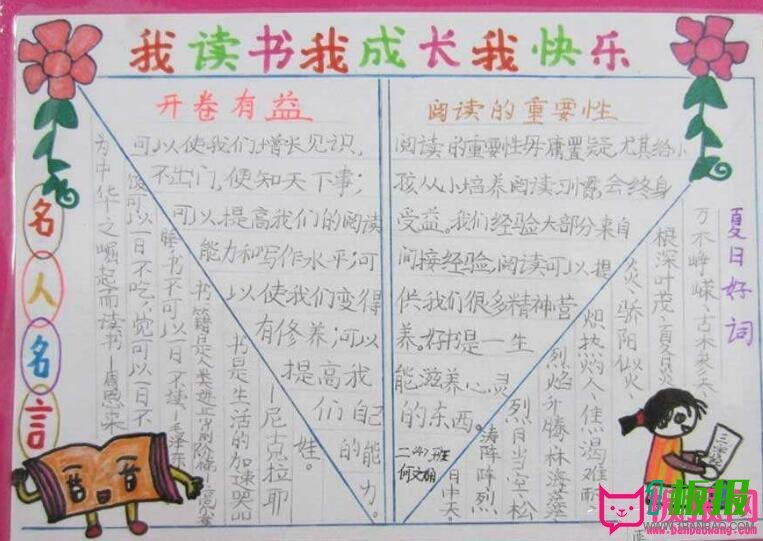 我读书我成长我快乐
开卷有益
可以使我们增长见识,
不出门,便知天下事;
可以提高我们的阅读
能力和写作水平;可
以使我们变得
有修养;可以
提高我
们自己
的能
力。
阅读的重要性
阅读的重要性毋庸置疑尤其给小
孩从小培养阅读习惯,会终身
受益。我们经验大部分来自
间接经验,阅读可以提
供我们很多精神营
养。好书是一生
能滋养心灵
的东西。
二
班
何文
名人名言
为中华之崛起而读书—周恩来
饭可以一日不吃,觉可以一日不
睡书不可以一日不读—毛泽东
书籍是人类进步的阶梯
书是生活的加速器
—尼克拉耶
娃。
夏日好词
万木峥嵘、古木参天、
根深叶茂、夏日炎
炎、骄阳似火、
炽热灼人、焦渴难耐
烈焰升腾、林海茫茫
烈日当空、松
涛阵阵、烈
日中天。
板报网